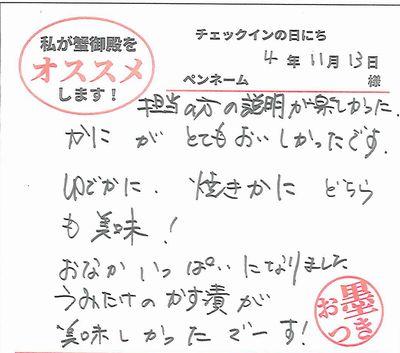 私が蟹御殿を
オススメ
します！
チェックインの日にち
4年11月13日
ペンネーム 様
担当の方の説明が楽しかった。
かにがとてもおいしかったです。
ゆでかに、焼きかにどちら
も美味！
おなかいっぱいになりました
うみたけのかす漬が
美味しかったでーす！
お墨つき